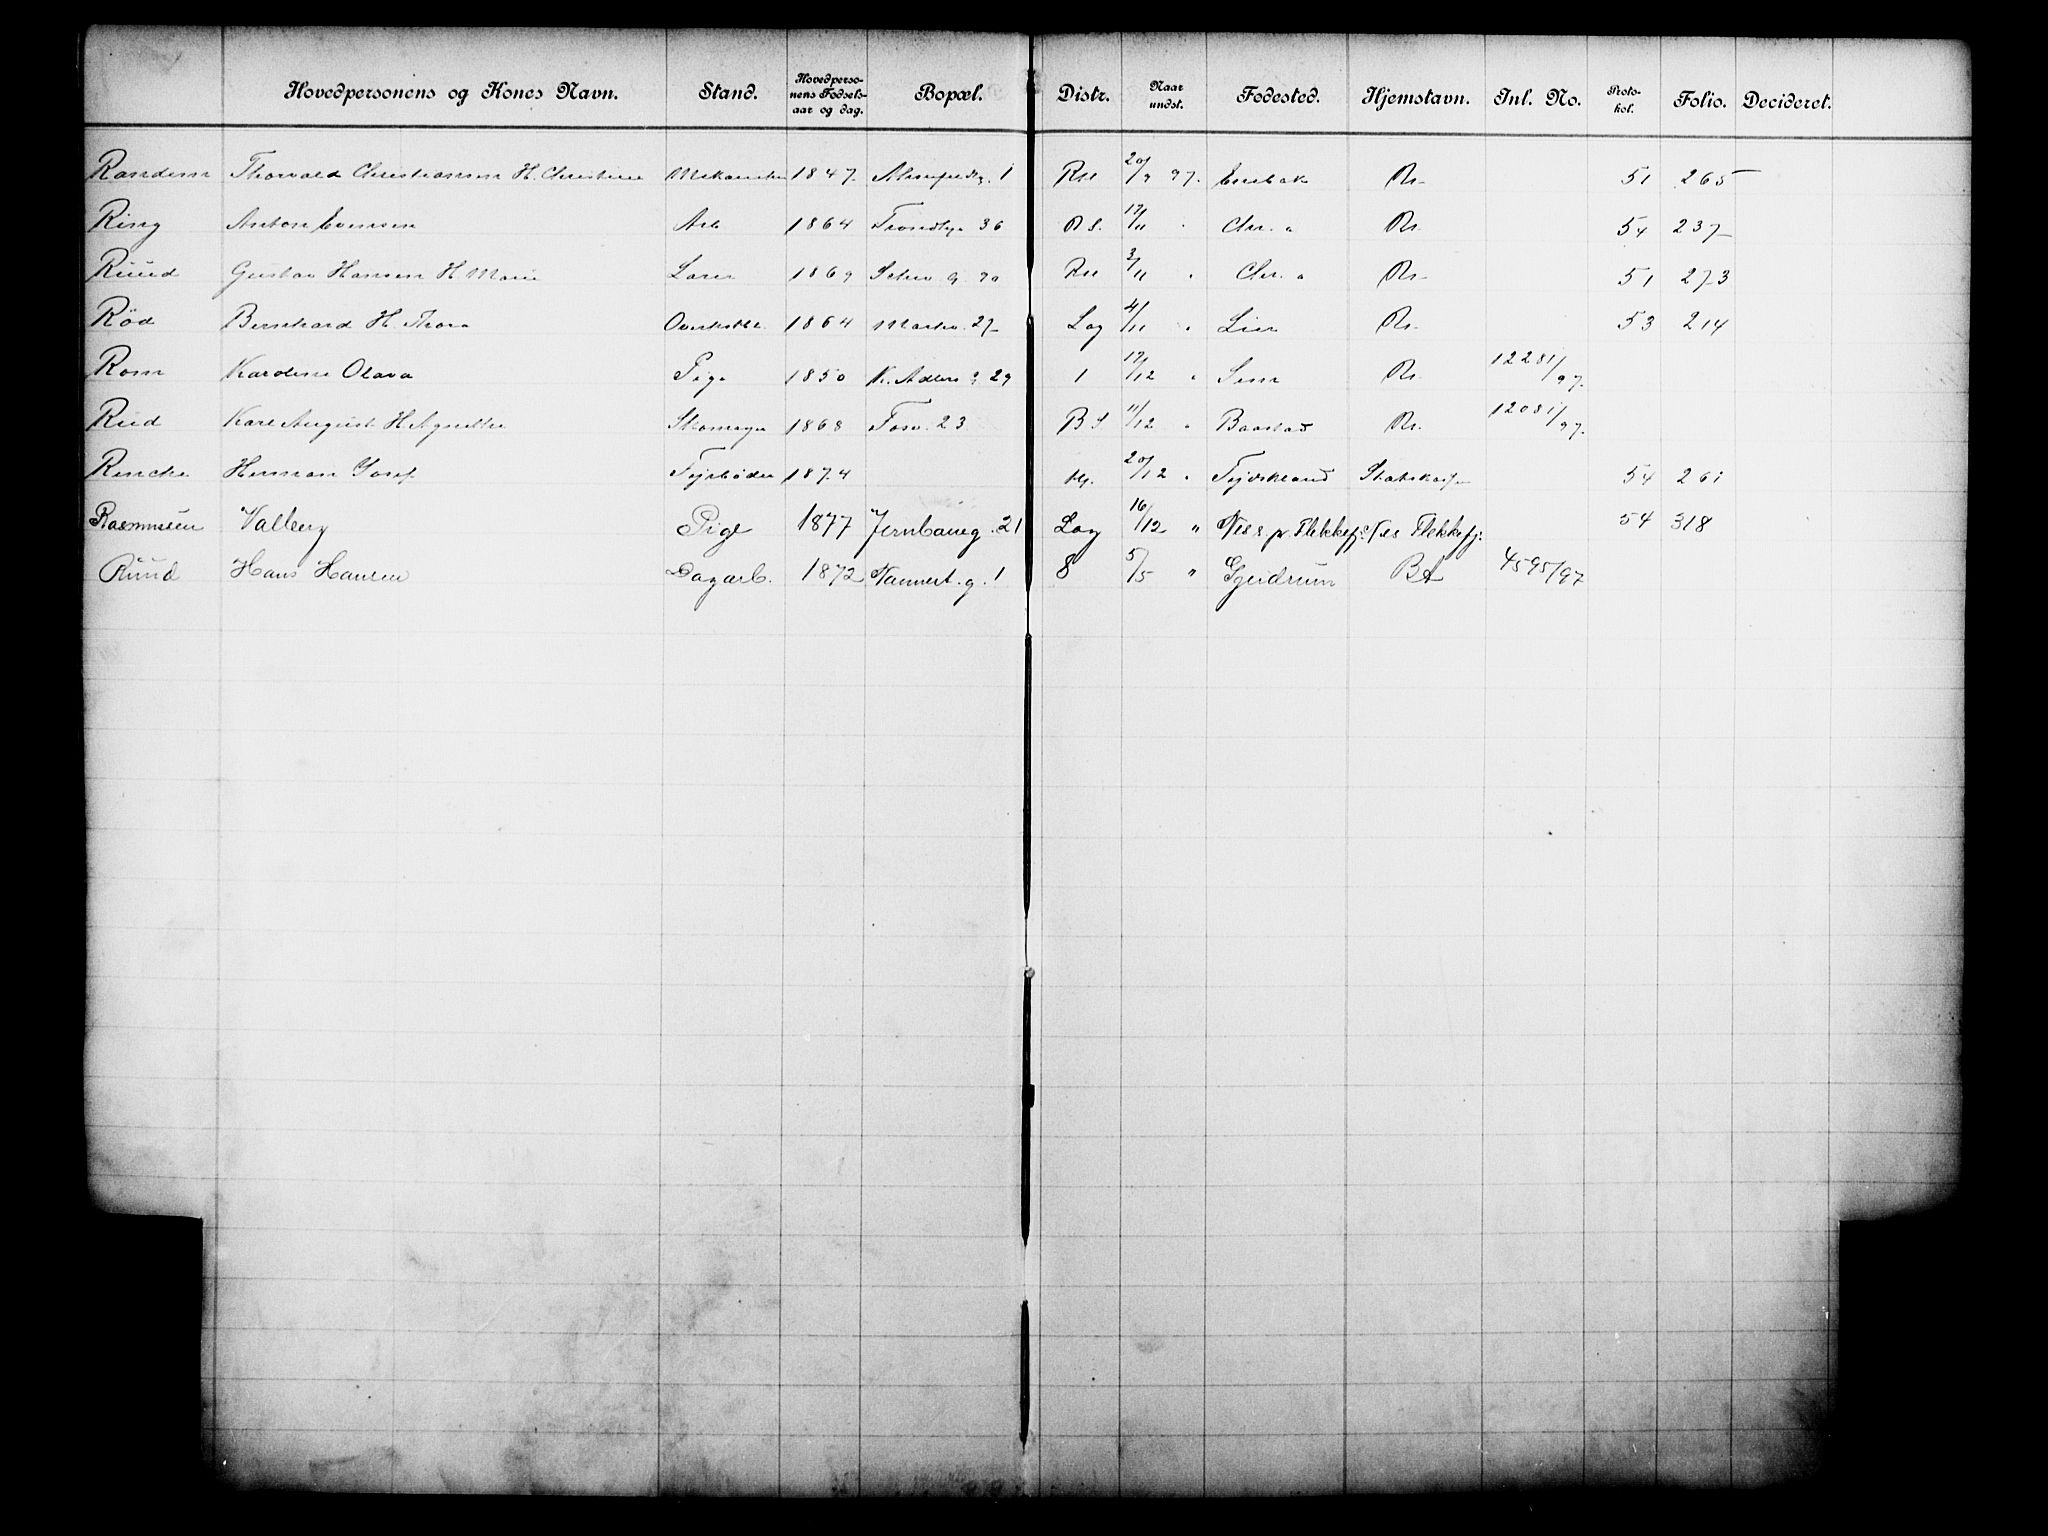 Hovedpersonens og Kones Navn. Stand. Hovedperso-nens Fødsels-aar og dag. Bopæl. Distr. Naar undst. Fødested. Hjemstavn. Inl. No. Proto-kol. Folio. Decideret.
Randem Thorvald Christiansen H. Christine 1847. 1 RH 20/9 97. Enebak Rr. 51 265
Ring Anton Evensen Arb 1864 Trondhj. 36 R S. 17/11 " Chr. a Rr. 54 237
Ruud Gustav Hansen H. Marie 1869 RH 3/11 " Chr. a Rr. 51 273
Rød Bernhard H. Thora 1864 Markv. 27 Log 4/11 " Lier Rr. 53 214
Rom Karoline Olava Pige 1850 K. Adlers g 29 1 17/12 " Rr. 12281/97.
Rud Karl August H. Agnethe Skomager 1868 Fosv. 23 B S 11/12 " Baastad Rr. 12081/97.
Rencke Herman Josef Fyrbøder 1874 20/12 " Tydskland Statskassen 54 261
Rasmussen Valberg Pige 1877 Jernbaneg. 21 Log 16/12 " Nes p. Flekkefj. Nes Flekkefj: 54 318
Ruud Hans Hansen Dagarb. 1872 Nannest. g. 1 8 5/5 " Gjeidrum BA 4595/97